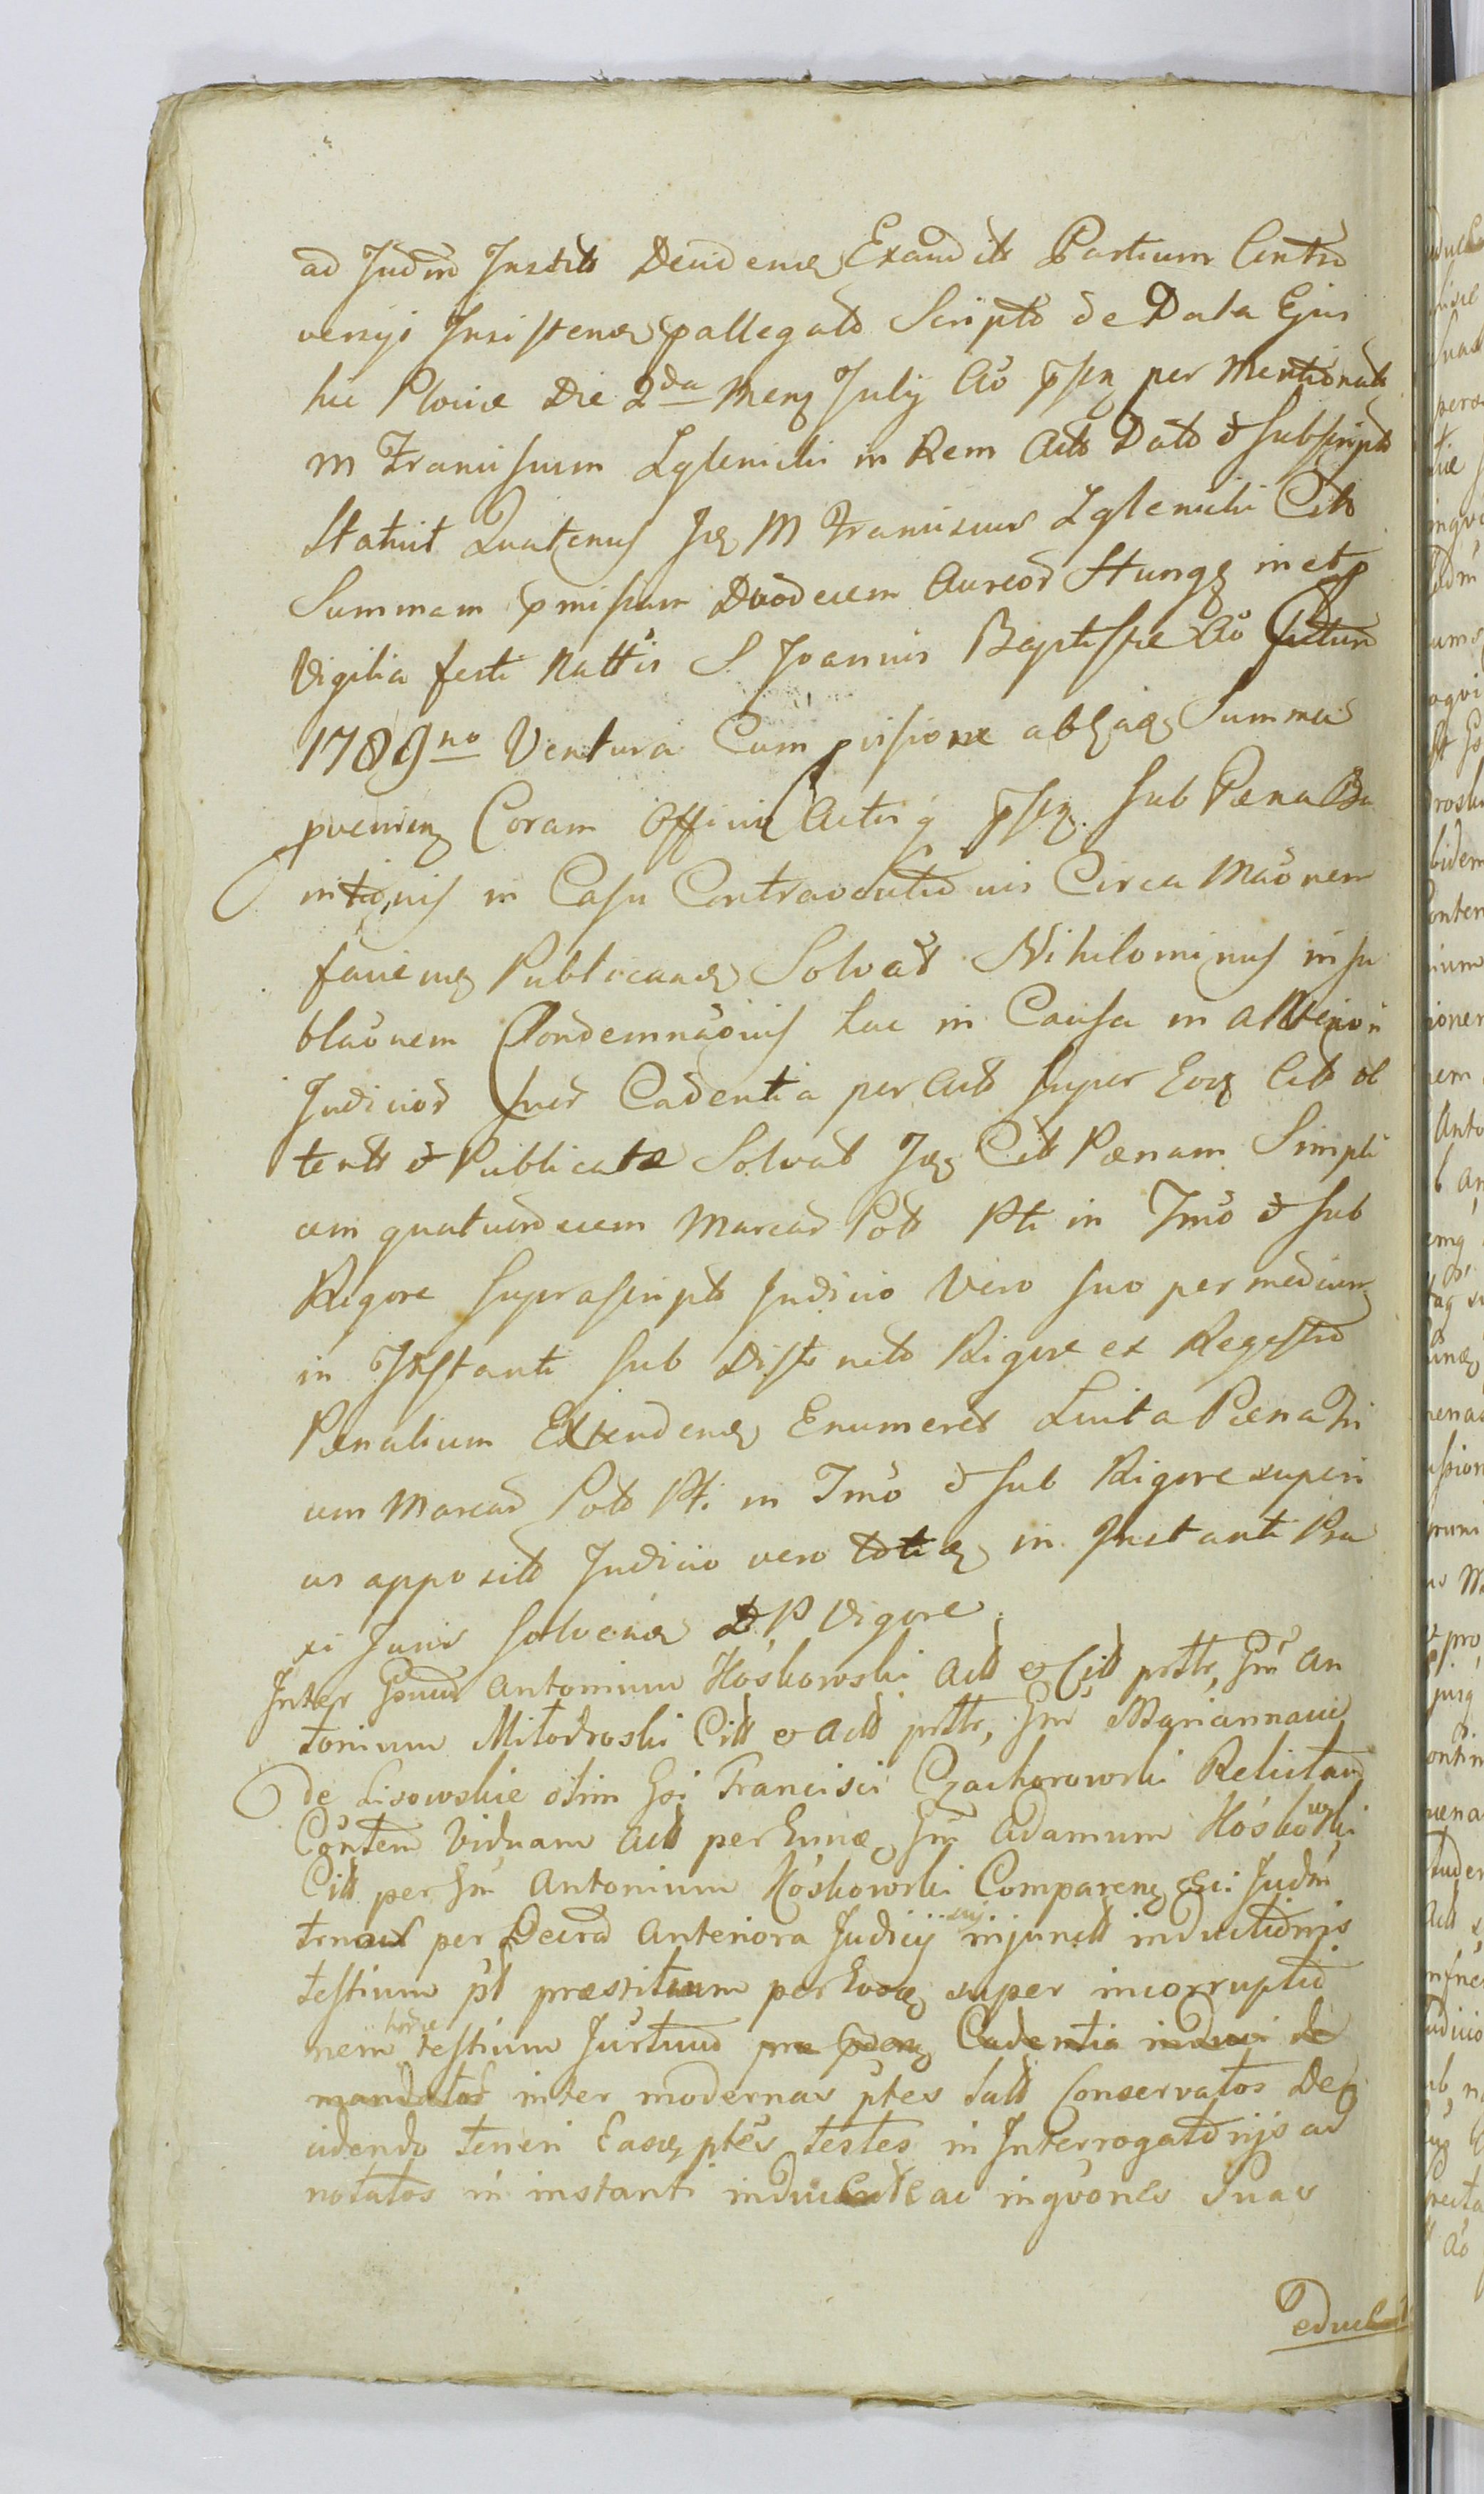 ad Judm Instits Decidend Exaudits Partium Contro
versys Insistend pallegato Scripto de Data Ejus
hic Plociæ Die 2da Mens July Ao psen per Mentionat
M Franciscum Zglenicki in Rem Acts Dato & subscripto
Statuit Quatenus Idem M Franciscus Zglenicki Cits
Summam pmissam Duodecem Aureor Hung in et p
Vigilia festi Nattis S. Joannis Baptistæ Ao futuro
1789no Ventura Cum pvisione ab Summa
pveniens Coram Officio Actisq psen. sub Pæna Ba
nitionis in Casu Contraventionis Circa Maonem
faciend Publicand Solvat Nihilominus in su
blaonem Condemnaonis hac in Causa in anterior
Judicior suor Cadentia per Acts super Eog Cits ob
tents & Publicatæ Solvat Idem Cits Pænam Simpli
cem quatuordecem Marcar Pols Pti in Imo & sub
Rigore suprascripto Judicio Vero suo per medium
in Instanti sub Districto Rigore ex Regestro
Pænalium Extendend Enumeret Luita Pæna Tri
um Marcar Pols Pti in Imo & sub Rigore superi
us apposito Judicio vero toties in Instanti Pra
xi Juris solvend D. P Vigore.
Inter Gsum Antonium Hoskowski Actt & Citt prtte, Gm An
tonium Mitodroski Citt & Actt prtte, Gm Mariannam
de Lisowskie olim Gsi Francisci Czachorowski Relictam
Contem Viduam Actt per Eund Gm Adamum Hoskowski
Citt per Gm Antonium Hoskowski Comparens Judm
trnas per Decra Anteriora Judicij sui injunctt inductionis
testium pt præstitum per Eosd super incorruptio
nem hodie testium Jurtum pro Cadentia induci de
mandatos inter modernas ptes Conservatos De
cidendo teneri Easd ptes testes in Interrogatorijs ad
notatos in instanti inducere ac inqvones Suas
educere